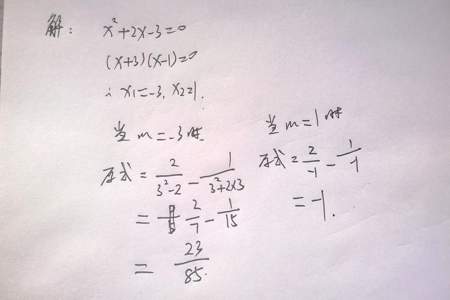 解: x²+2x-3=0
(x+3)(x-1)=0
∴ x₁=-3, x₂=1.
当m=-3时
原式=2/(3²-2)-1/(3²+2×3)
=2/7-1/15
=23/85.
当m=1时
原式=2/-1-1/-1
=-1.